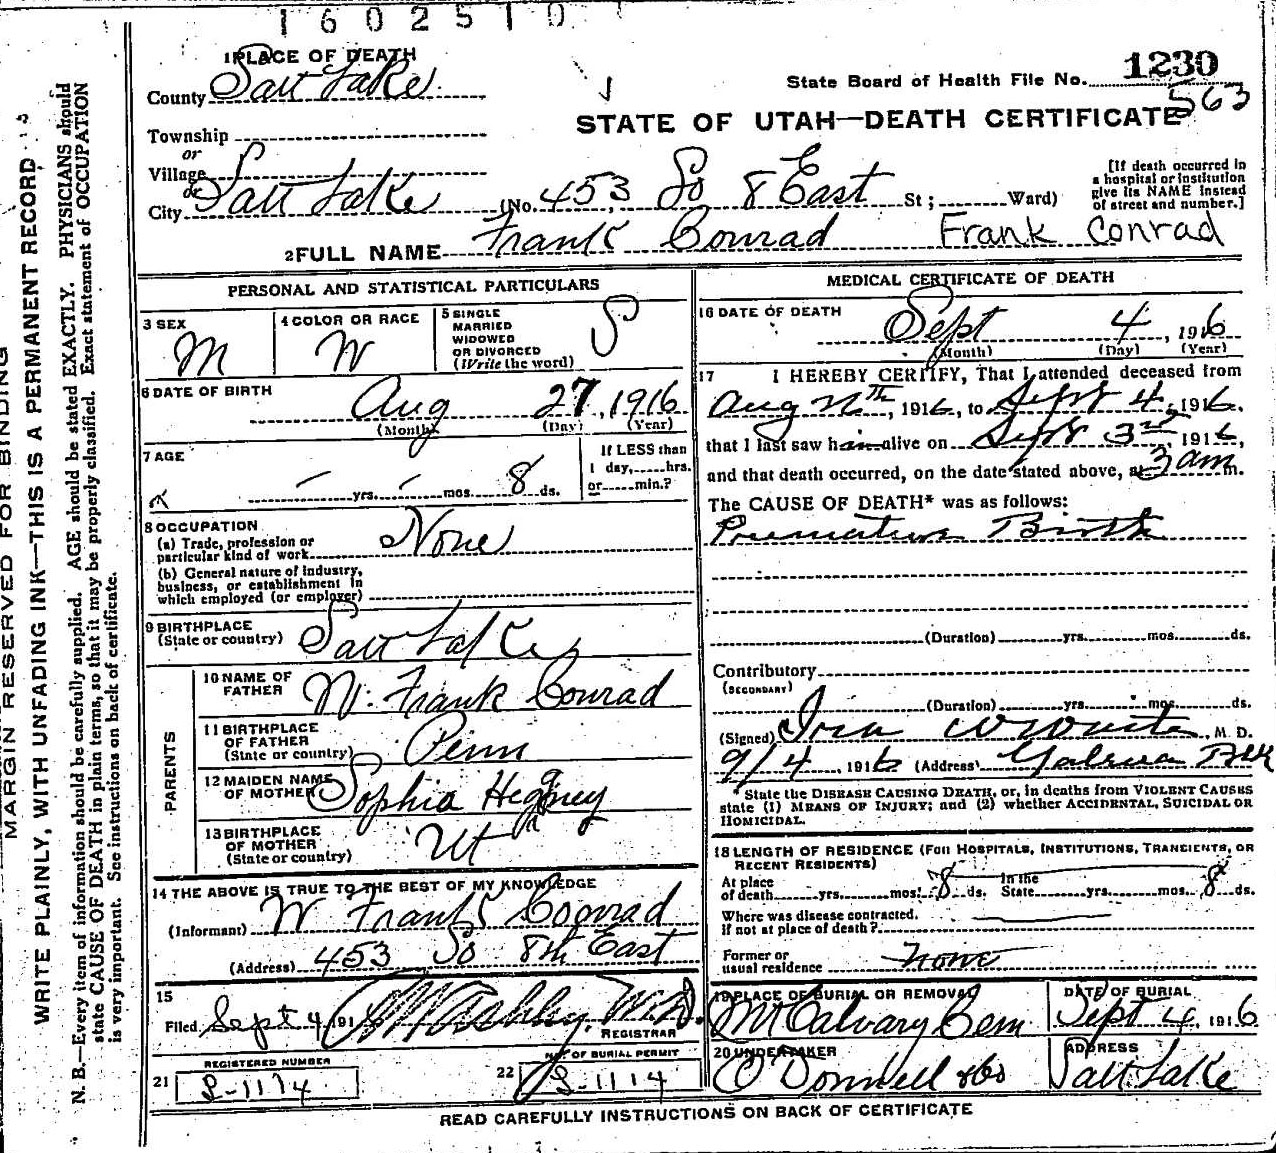 1602510
1 PLACE OF DEATH
State Board of Health File No. 1230
563
County Salt Lake
STATE OF UTAH—DEATH CERTIFICATE
Township
or
Village
or
City Salt Lake (No. 453 So 8 East St; Ward)
[If death occurred in
a hospital or institution
give its NAME instead
of street and number.]
2 FULL NAME Frank Conrad Frank Conrad
PERSONAL AND STATISTICAL PARTICULARS
3 SEX M
4 COLOR OR RACE W
5 SINGLE
MARRIED
WIDOWED
OR DIVORCED
(Write the word) S
6 DATE OF BIRTH Aug 27, 1916
(Month) (Day) (Year)
7 AGE
— yrs. — mos. 8 ds.
If LESS than
1 day, hrs.
or min.?
8 OCCUPATION
(a) Trade, profession or
particular kind of work None
(b) General nature of industry,
business, or establishment in
which employed (or employer)
9 BIRTHPLACE
(State or country) Salt Lake
PARENTS
10 NAME OF
FATHER W. Frank Conrad
11 BIRTHPLACE
OF FATHER
(State or country) Penn
12 MAIDEN NAME
OF MOTHER Sophia
13 BIRTHPLACE
OF MOTHER
(State or country) Ut
14 THE ABOVE IS TRUE TO THE BEST OF MY KNOWLEDGE
(Informant) W Frank Conrad
(Address) 453 So 8th East
15
Filed Sept 4 191 Ashby, M.D.
REGISTRAR
REGISTERED NUMBER
21 S-1114
NO. OF BURIAL PERMIT
22 S-1114
MEDICAL CERTIFICATE OF DEATH
16 DATE OF DEATH
Sept 4, 1916
(Month) (Day) (Year)
17 I HEREBY CERTIFY, That I attended deceased from
Aug th, 1916, to Sept 4, 1916,
that I last saw him alive on Sept 3rd, 1916,
and that death occurred, on the date stated above, at 3 am m.
The CAUSE OF DEATH* was as follows:
Premature Birth
(Duration) yrs. mos. ds.
Contributory
(SECONDARY)
(Duration) yrs. mos. ds.
(Signed) Ira M. D.
9/4, 1916 (Address)
*State the DISEASE CAUSING DEATH, or, in deaths from VIOLENT CAUSES
state (1) MEANS OF INJURY; and (2) whether ACCIDENTAL, SUICIDAL OR
HOMICIDAL.
18 LENGTH OF RESIDENCE (FOR HOSPITALS, INSTITUTIONS, TRANCIENTS, OR
RECENT RESIDENTS)
At place In the
of death yrs. mos. 8 ds. State yrs. mos. 8 ds.
Where was disease contracted,
if not at place of death?
Former or
usual residence none
19 PLACE OF BURIAL OR REMOVAL
Mt Calvary Cem
DATE OF BURIAL
Sept 4, 1916
20 UNDERTAKER
O'Donnell & Co
ADDRESS
Salt Lake
READ CAREFULLY INSTRUCTIONS ON BACK OF CERTIFICATE
MARGIN RESERVED FOR BINDING
WRITE PLAINLY, WITH UNFADING INK—THIS IS A PERMANENT RECORD
N. B.—Every item of information should be carefully supplied. AGE should be stated EXACTLY. PHYSICIANS should
state CAUSE OF DEATH in plain terms, so that it may be properly classified. Exact statement of OCCUPATION
is very important. See instructions on back of certificate.